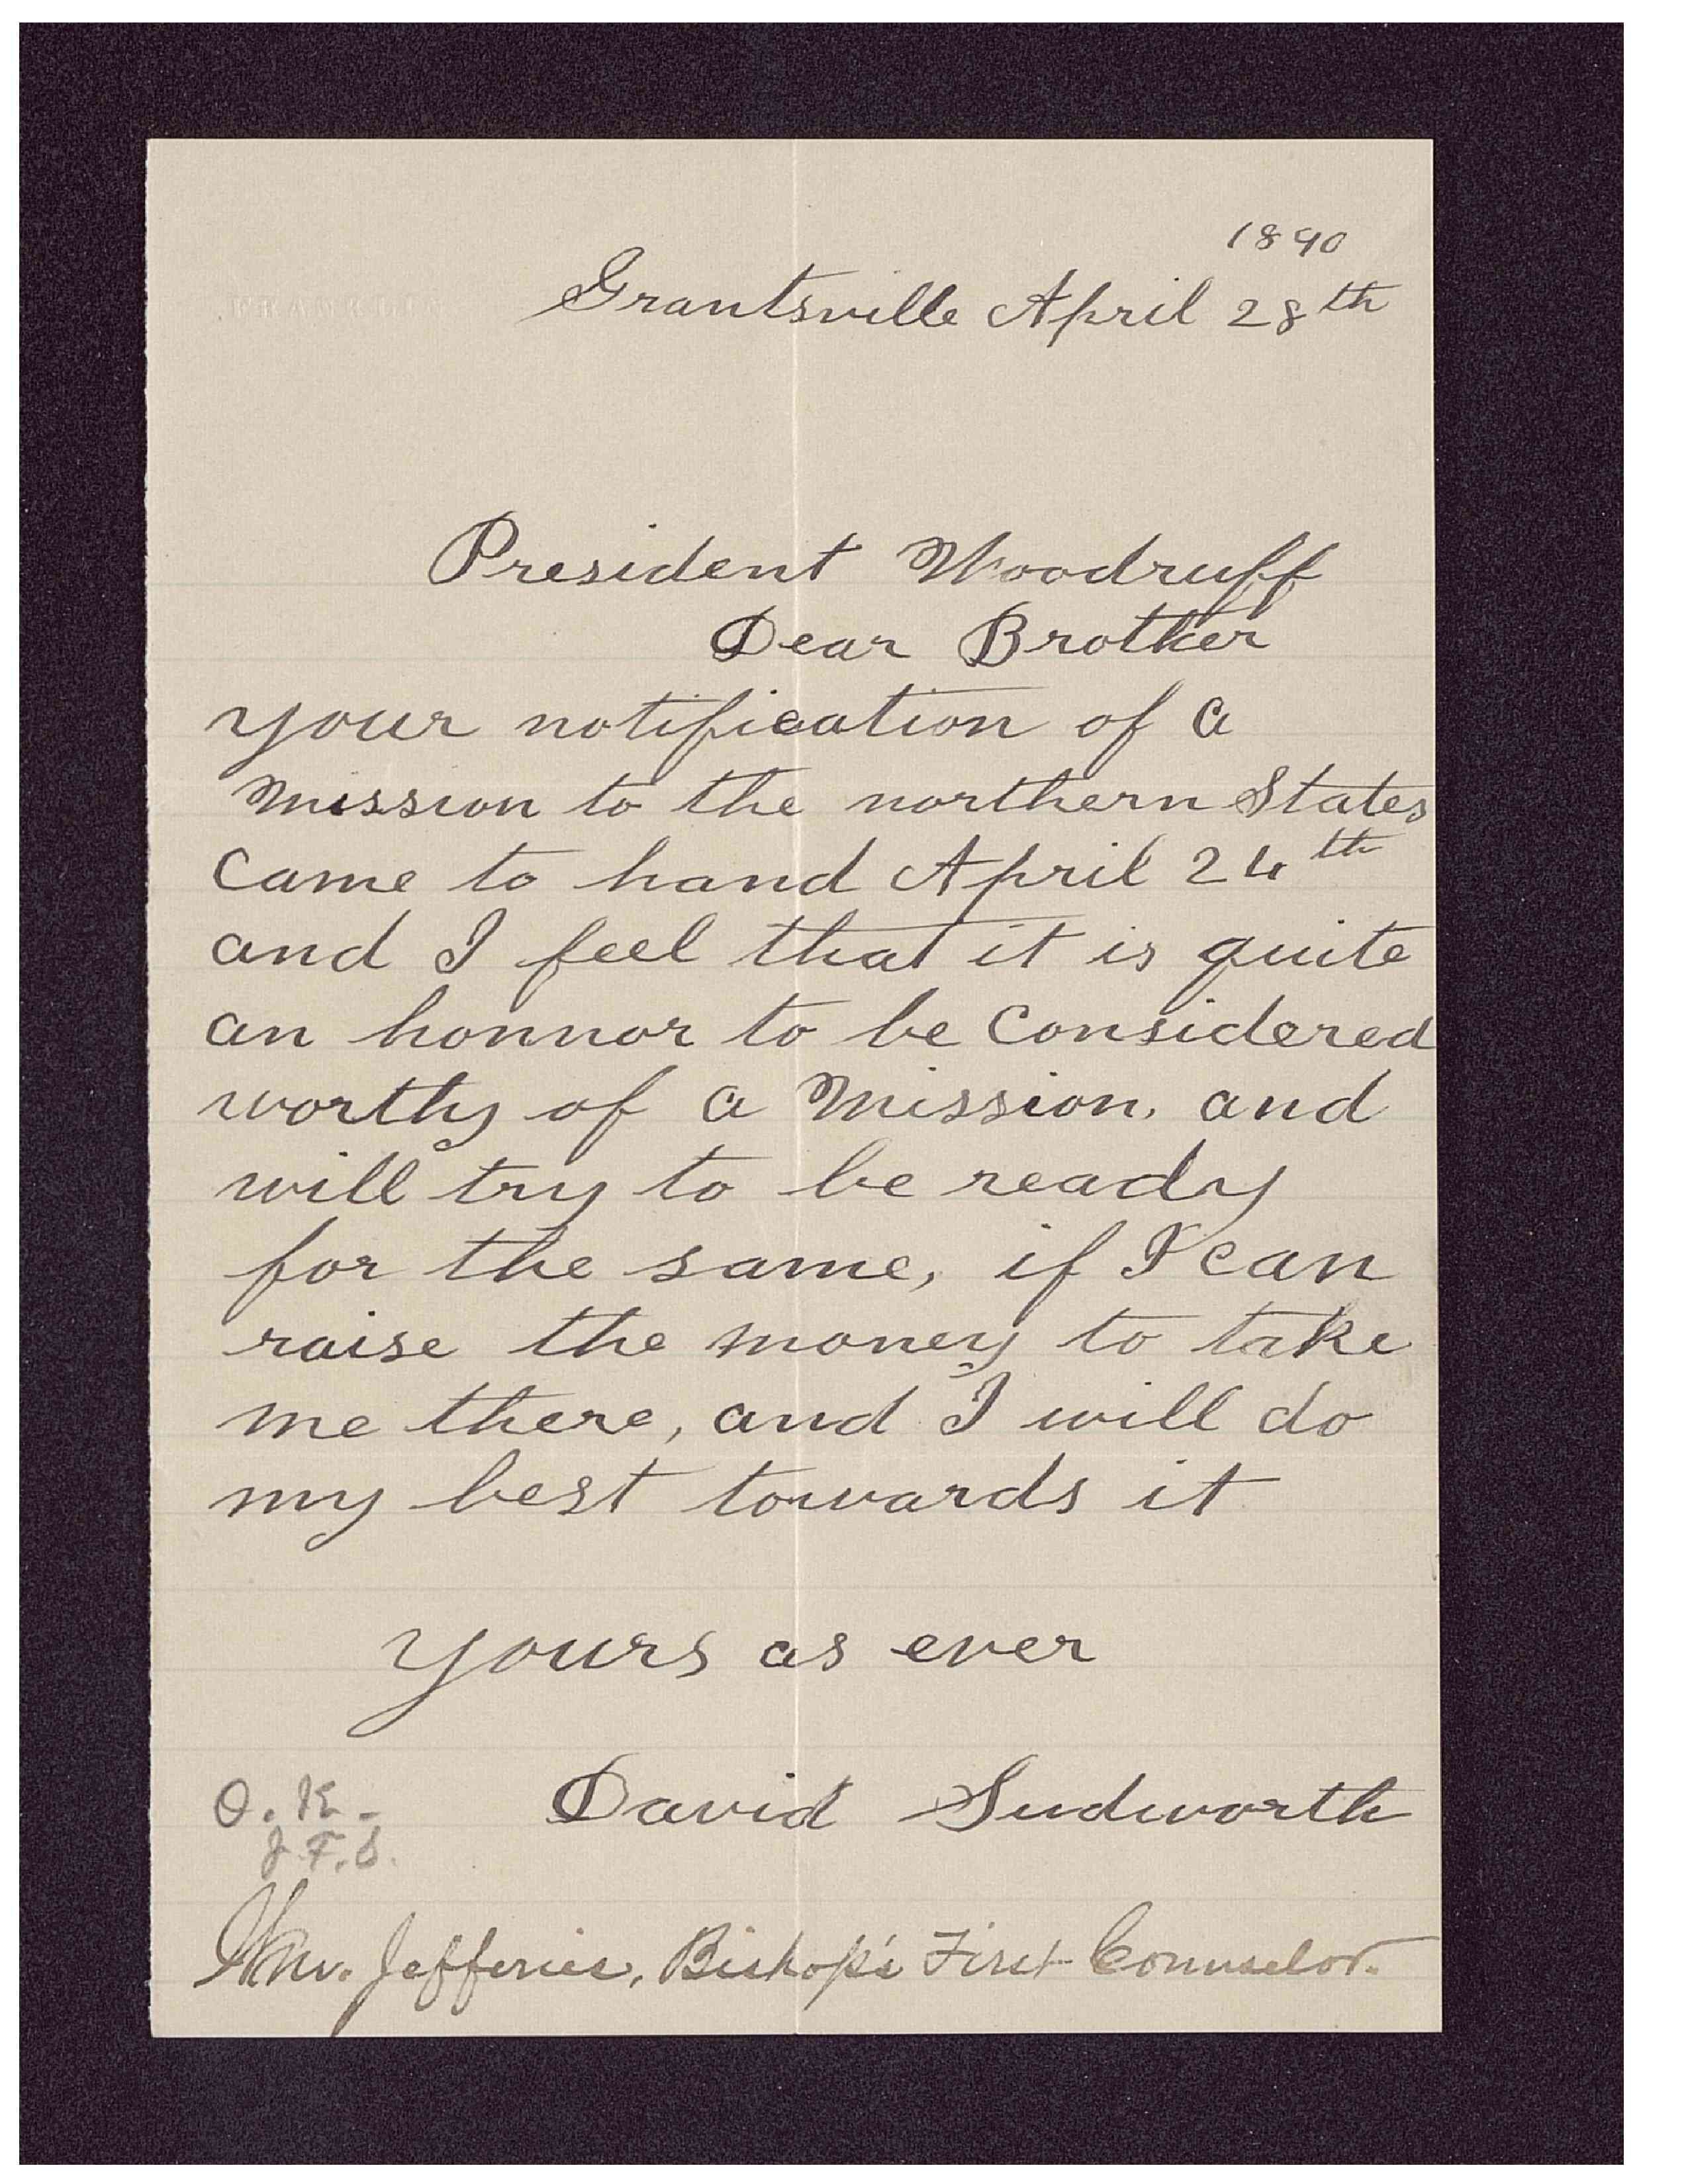 1890
Grantsville April 28th
FRANKLIN
President Woodruff
Dear Brother
your notification of a
Mission to the northern States
Came to hand April 24th
and I feel that it is quite
an honnor to be Considered
worthy of a Mission, and
will try to be ready
for the same, if I can
raise the money to take
me there, and I will do
my best towards it
yours as ever
David Sudworth
O. K. -
J. F. S.
Wm. Jefferies, Bishop's First Counselor.